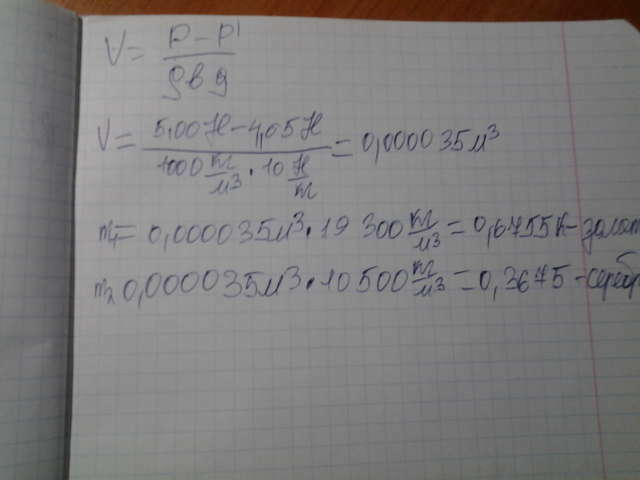 V = P - P¹ / ρв g
V = 5,00 Н - 4,05 Н / 1000 кг/м³ · 10 Н/кг = 0,000035 м³
m₁ = 0,000035 м³ · 19 300 кг/м³ = 0,6755 к - золот
m₂ 0,000035 м³ · 10 500 кг/м³ = 0,3675 - серебр